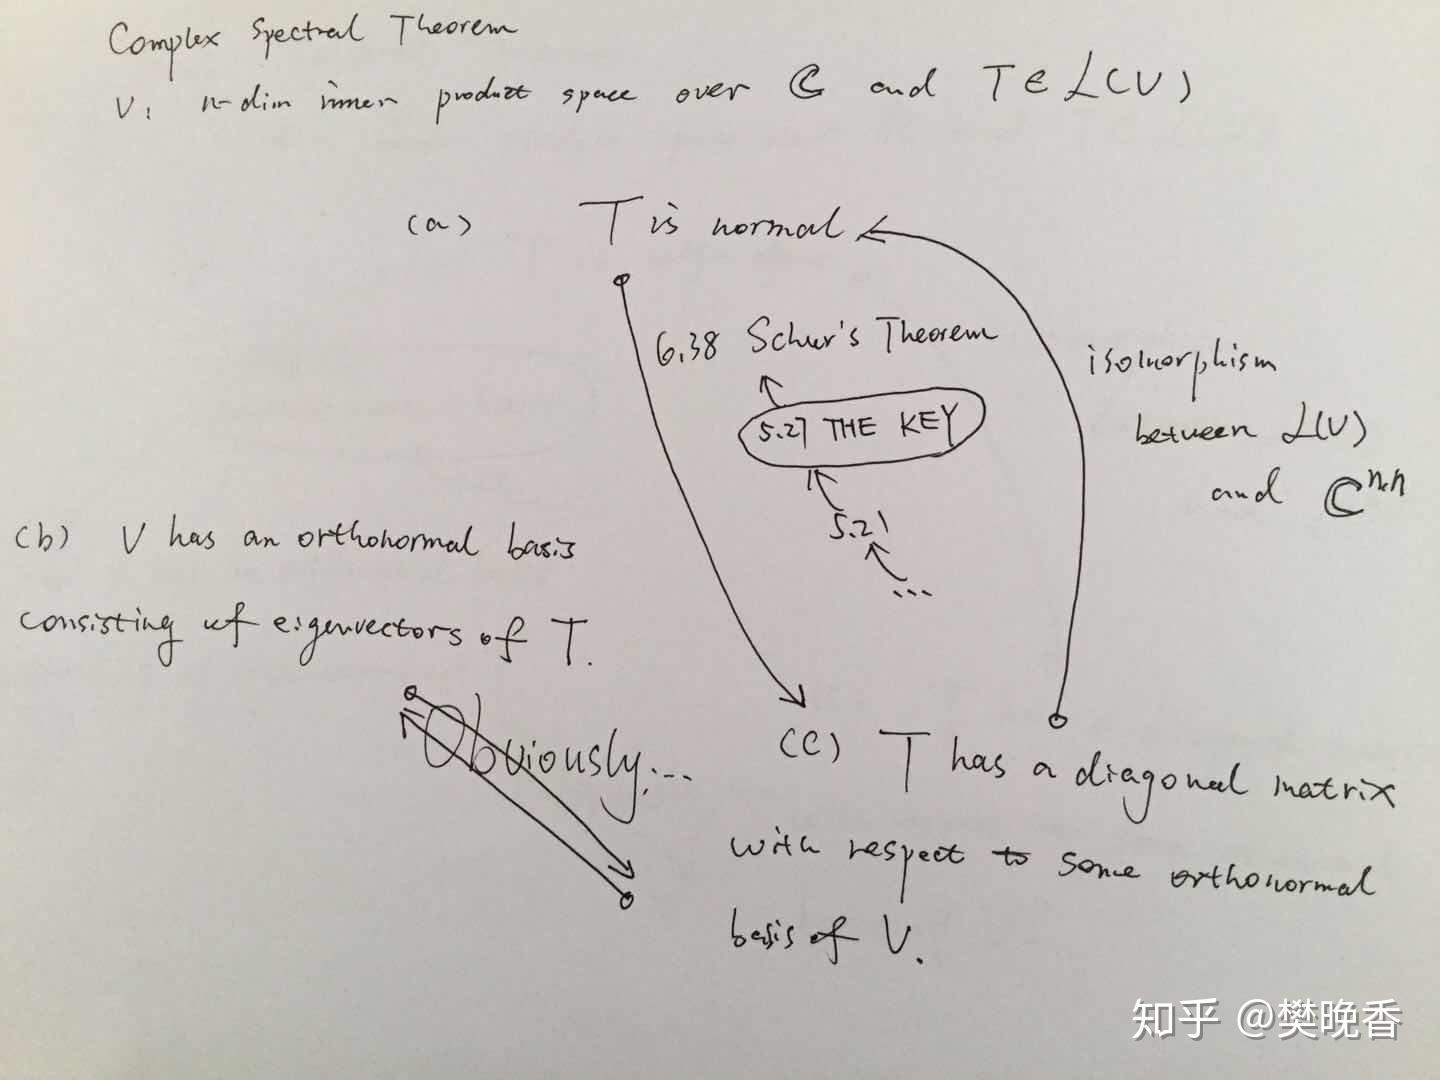 Complex Spectral Theorem
V: n-dim inner product space over ℂ and T ∈ ℒ(V)
(a) T is normal
6.38 Schur's Theorem
5.27 THE KEY
5.21
...
isomorphism
between ℒ(V)
and ℂⁿ·ⁿ
(b) V has an orthonormal basis
consisting of eigenvectors of T.
Obviously...
(c) T has a diagonal matrix
with respect to some orthonormal
basis of V.
知乎 @樊晚香